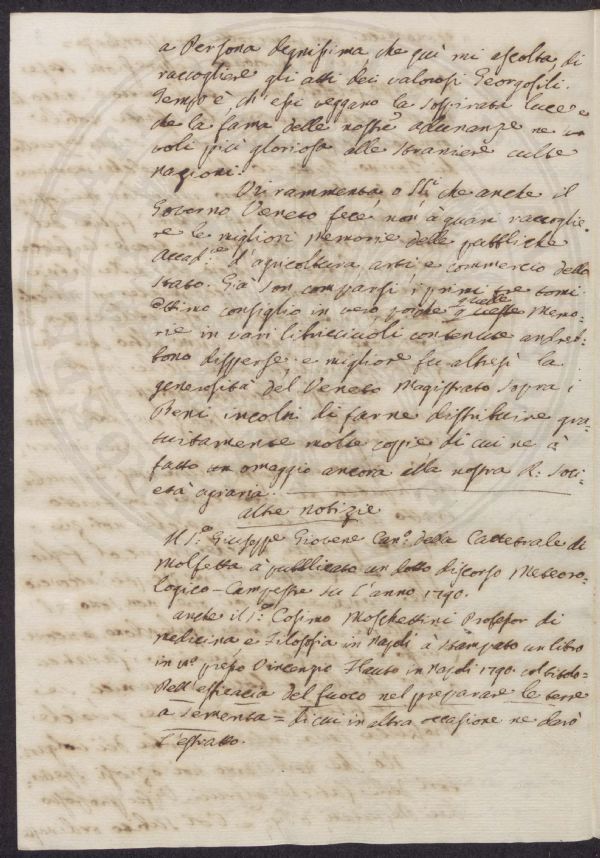 a Persona degnissima, che quì mi ascolta, di
raccogliere gli atti dei valorosi Georgofili.
Tempo è, ch'essi veggano la sospirata luce e
che la fama delle nostre adunanze ne
voli più gloriosa alle straniere culte
nazioni.
Vi rammenta, o SS.ri che anche il
Governo Veneto fece, non à guari raccoglie-
re le migliori memorie delle pubbliche
Accad.e d'agricoltura, arti e commercio dello
Stato. Già son comparsi i primi tre tomi.
Ottimo consiglio in vero, poiche quelle Memo-
rie in vari libricciuoli contenute andreb-
bono disperse; e migliore fu altresì la
generosità del Veneto Magistrato sopra i
Beni incolti di farne distribuire gra-
tuitamente molte copie di cui ne à
fatto un omaggio ancora alla nostra R: Soci-
età agraria.
altre notizie
Il S.r Giuseppe Giovene Can.o della Cattedrale di
Molfetta à pubblicato un dotto discorso Meteoro-
logico-Campestre su l'anno 1790.
anche il S.r Cosimo Moschettini Professor di
medicina e Filosofia in Napoli à stampato un libro
in 8.o presso Vincenzio Flauto in Napoli 1790. col titolo=
Dell'efficacia del fuoco nel preparare le terre
a sementa = di cui in altra occasione ne darò
l'estratto.